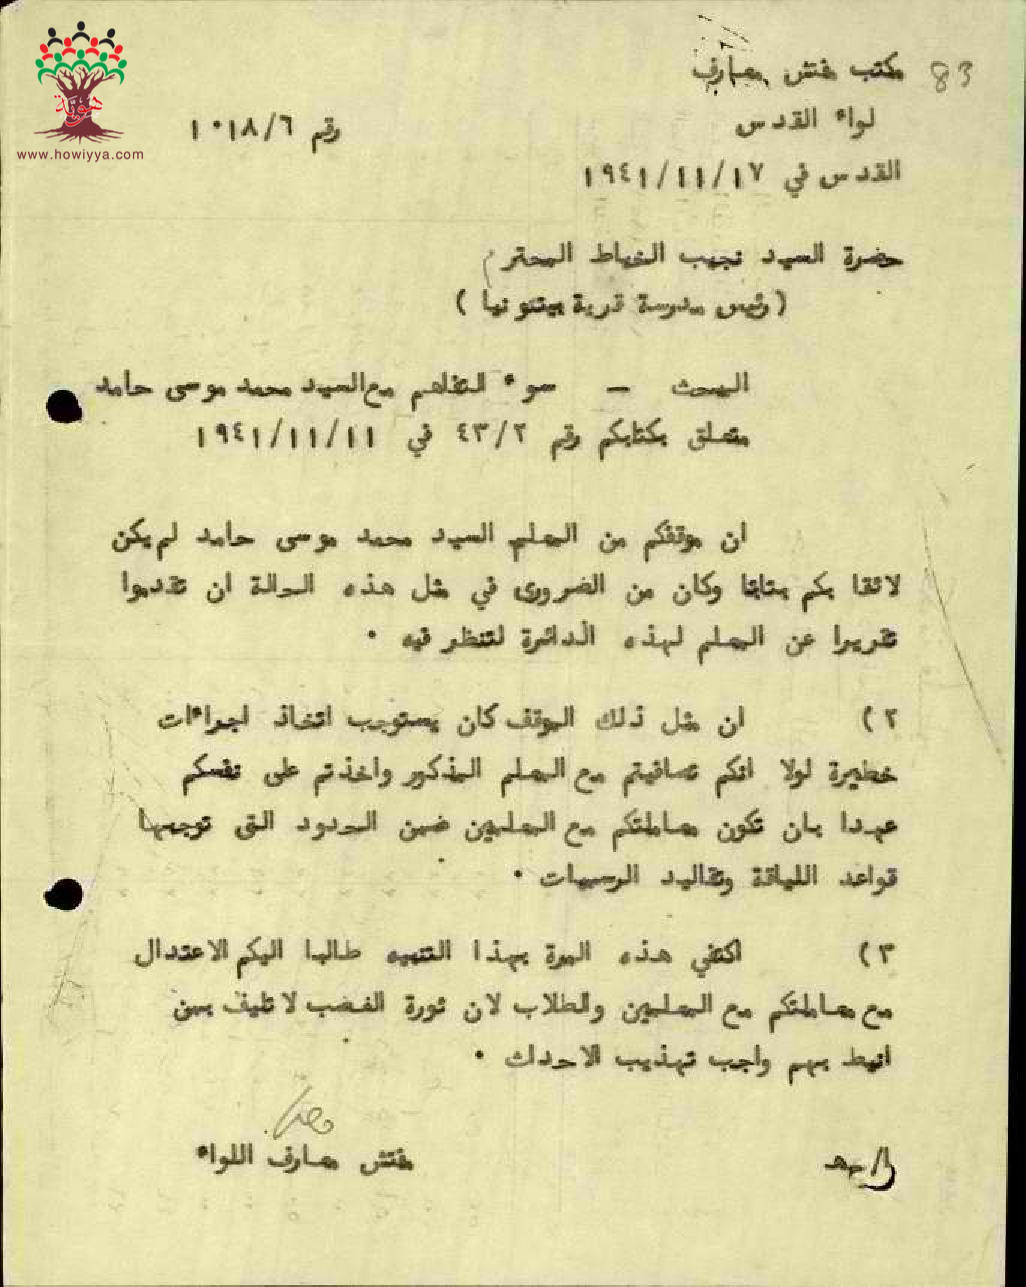 هوية
www.howiyya.com
83
مكتب مفتش معارف
لواء القدس
رقم ١٠١٨/٦
القدس في ١٩٤١/١١/١٧
حضرة السيد نجيب الخياط المحترم
(رئيس مدرسة قرية بيتونيا)
البحث — سوء التفاهم مع السيد محمد موسى حامد
متعلق بكتابكم رقم ٤٣/٢ في ١٩٤١/١١/١١
ان موقفكم من المعلم السيد محمد موسى حامد لم يكن
لائقا بكم بتاتا وكان من الضرورى في مثل هذه الحالة ان تقدموا
تقريرا عن المعلم لهذه الدائرة لتنظر فيه ٠
٢) ان مثل ذلك الموقف كان يستوجب اتخاذ اجراءات
خطيرة لولا انكم تصافيتم مع المعلم المذكور واخذتم على نفسكم
عهدا بان تكون معاملتكم مع المعلمين ضمن الحدود التى توجبها
قواعد اللياقة وتقاليد الرسميات ٠
٣) اكتفي هذه المرة بهذا التنبيه طالبا اليكم الاعتدال
مع معاملتكم مع المعلمين والطلاب لان ثورة الغضب لا تليق بمن
انيط بهم واجب تهذيب الاحداث ٠
مفتش معارف اللواء